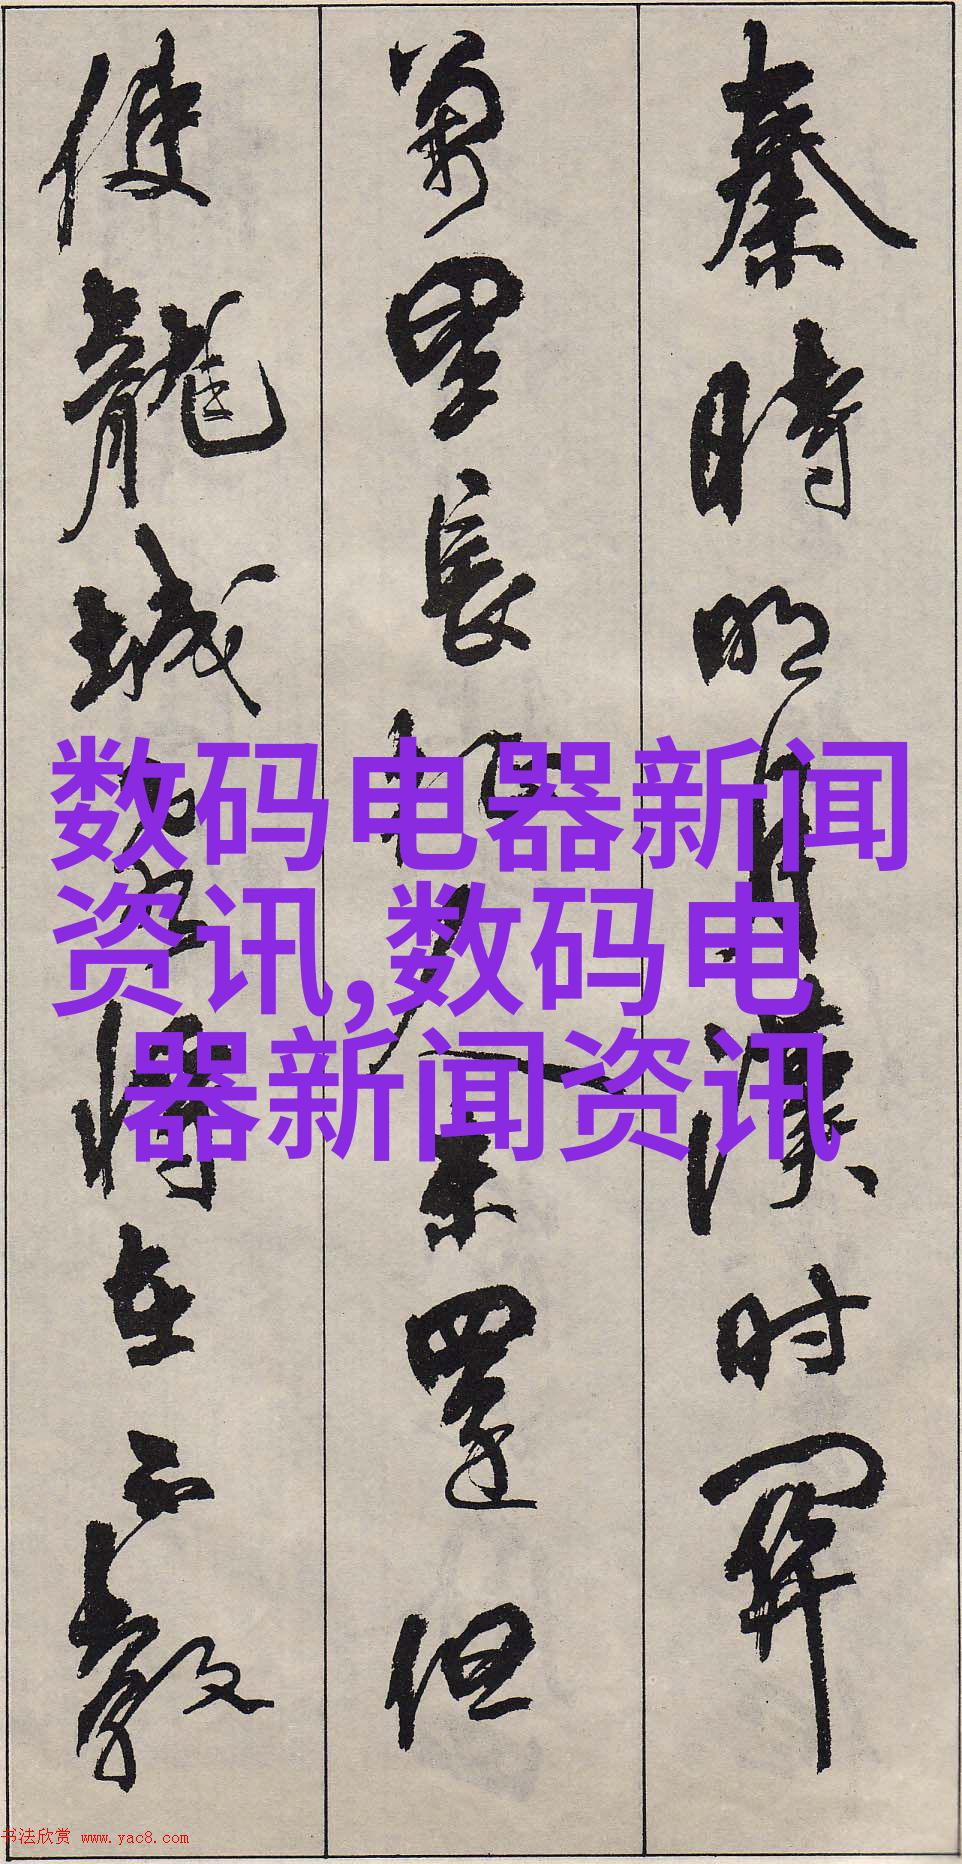 秦時明月漢时關
萬里長征人未還但
使龍城飛將在不教
数码电器新闻
资讯,数码电
器新闻资讯
书法欣赏 www.yac8.com